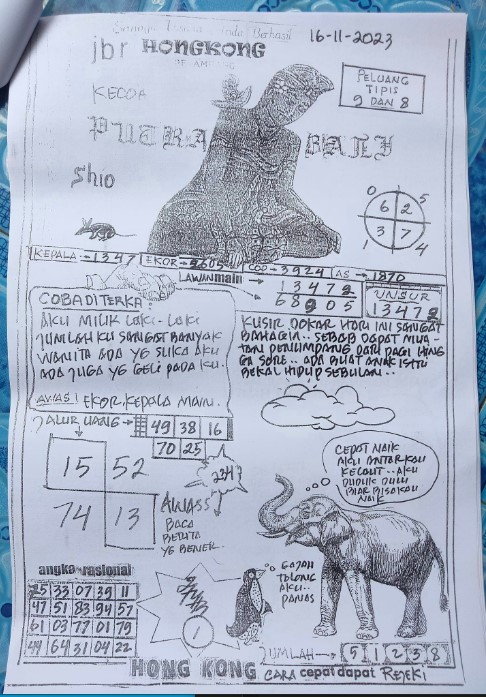 Berhasil
16-11-2023
jbr HONGKONG
PELUANG
TIPIS
9 DAN 8
KEDOA
PUTRA BALI
Shio
0 5
6 2
3 7
1 4
KEPALA → 1347 EKOR → 9605 COP → 3924 AS → 1870
LAWAN main
1347
68905
UNSUR
1347
COBA DITERKA
AKU MILIK LAKI-LAKI
JUMLAHKU SANGAT BANYAK
WANITA ADA YG SUKA AKU
ADA JUGA YG GELI PADA KU.
AWAS! EKOR.KEPALA MAIN.
KUSIR DOKAR HARI INI SANGAT
BAHAGIA.. SEBAB DAPAT MUA-
TAN PENUMPANG DARI PAGI HING
GA SORE.. ADA BUAT ANAK ISTRI
BEKAL HIDUP SEBULAN..
JALUR UANG → 49 38 16
70 25
15 52
74 13
234
AWASS
BACA
BERITA
YG BENER
CEPAT NAIK
AKU ANTAR KAU
KELAUT..AKU
DUDUK DULU
BIAR BISA KAU
NAIK
GAJAH
TOLONG
AKU..
PANAS
angka rasional
25 33 07 39 11
47 51 83 94 57
61 03 77 01 79
44 64 31 04 22
1
JUMLAH → 5 1 2 3 8
HONG KONG CARA cepat dapat REJEKI